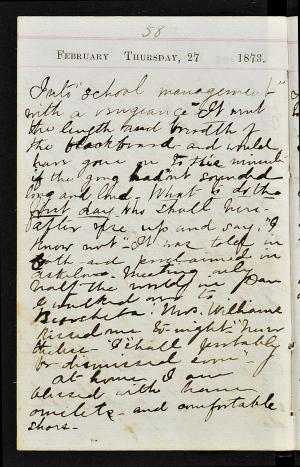 58
FEBRUARY THURSDAY, 27 1873.
Into "school management"
with a vengeance. It went
the length and breadth of
the blackboard and would
have gone on to this minute
if the gong hadn't sounded
long and loud. What is to the
first day who shall here-
after rise up and say, "I
know not" It was told in
- and proclaimed in
meeting only
half the world in
walked over to
Mrs. Williams
kissed me to-night.
"I shall probably
be dismissed soon" -
At home, I am
blessed with ham
omelets - and comfortable
shoes -